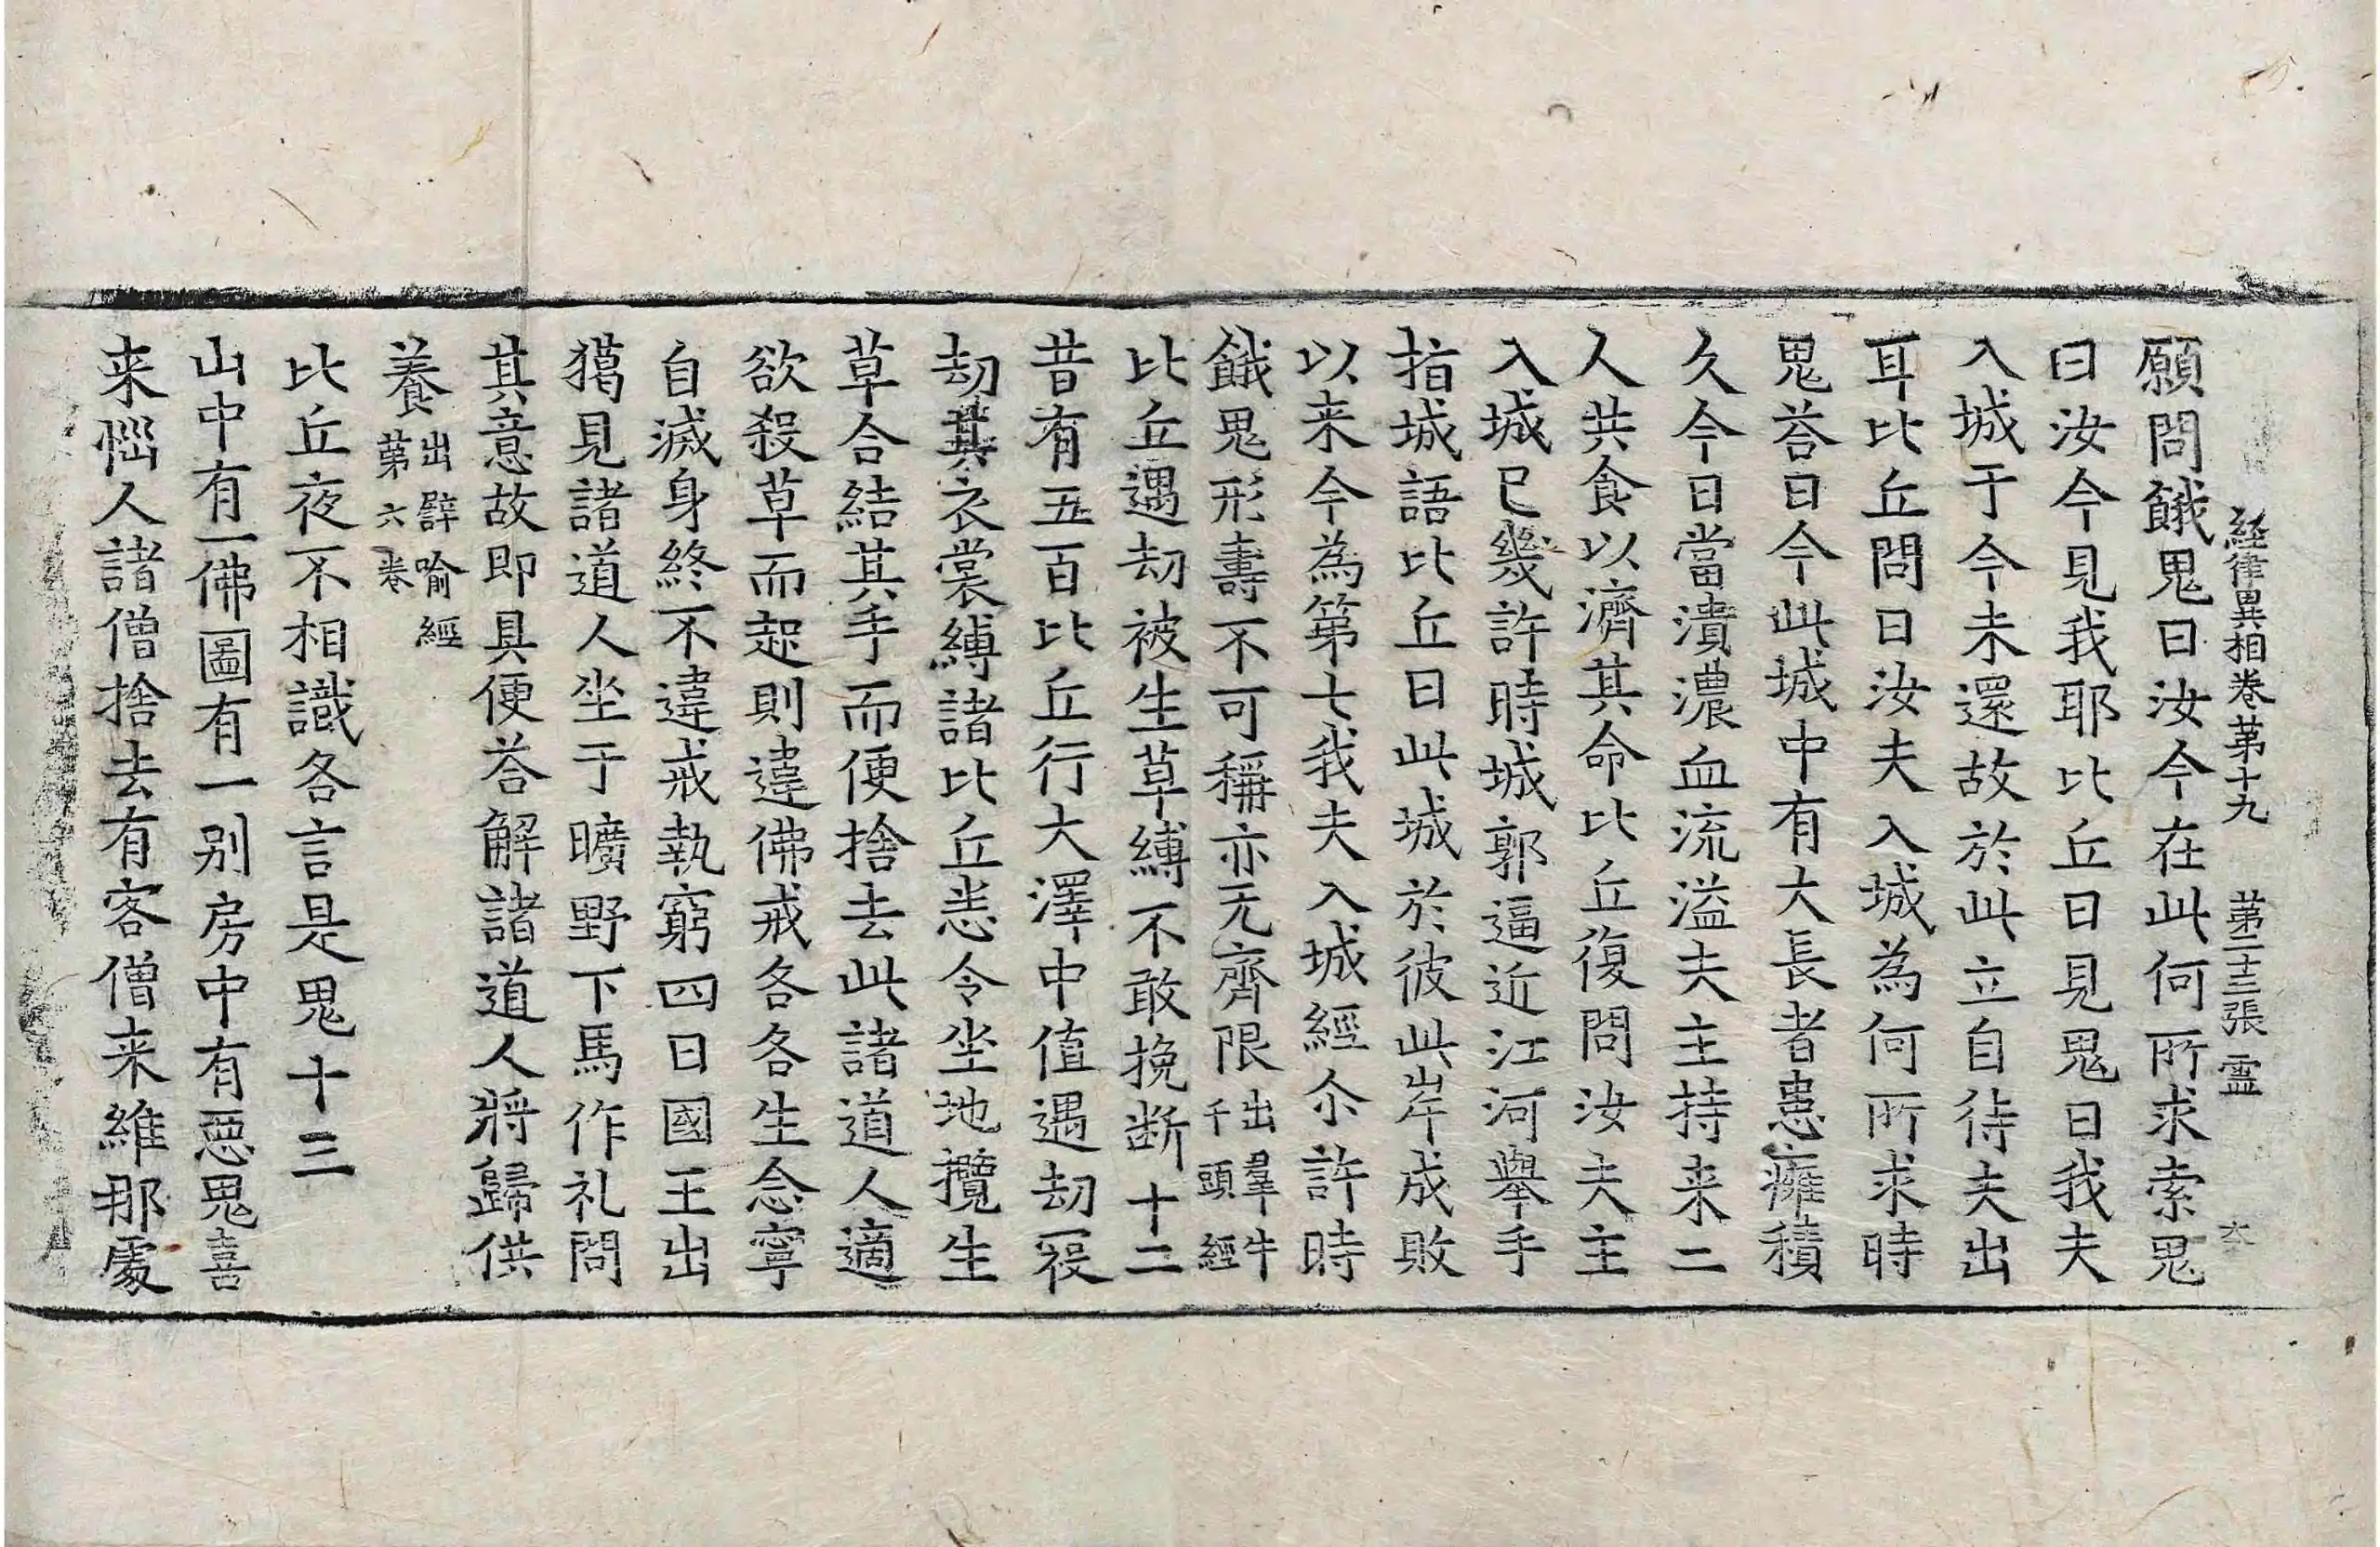 経律異相卷第十九 第二十三張 霊
願問餓鬼曰汝今在此何所求索鬼
曰汝今見我耶比丘曰見鬼曰我夫
入城于今未還故於此立自待夫出
耳比丘問曰汝夫入城為何所求時
鬼荅曰今此城中有大長者患癰積
久今日當潰濃血流溢夫主持来二
人共食以濟其命比丘復問汝夫主
入城已幾許時城郭逼近江河舉手
指城語比丘曰此城於彼此岸成敗
以来今為第七我夫入城經尒許時
餓鬼形壽不可稱亦无齊限出羣牛千頭經
比丘遇劫被生草縛不敢挽断十二
昔有五百比丘行大澤中值遇劫𬒮
劫其衣裳縛諸比丘悉令坐地攬生
草合結其手而便捨去此諸道人適
欲殺草而起則違佛戒各各生念寧
自滅身終不違戒執窮四日國王出
獦見諸道人坐于曠野下馬作礼問
其意故即具便荅解諸道人將歸供
養出譬喻經第六卷
比丘夜不相識各言是鬼十三
山中有一佛圖有一別房中有惡鬼喜
来惱人諸僧捨去有客僧来維那處